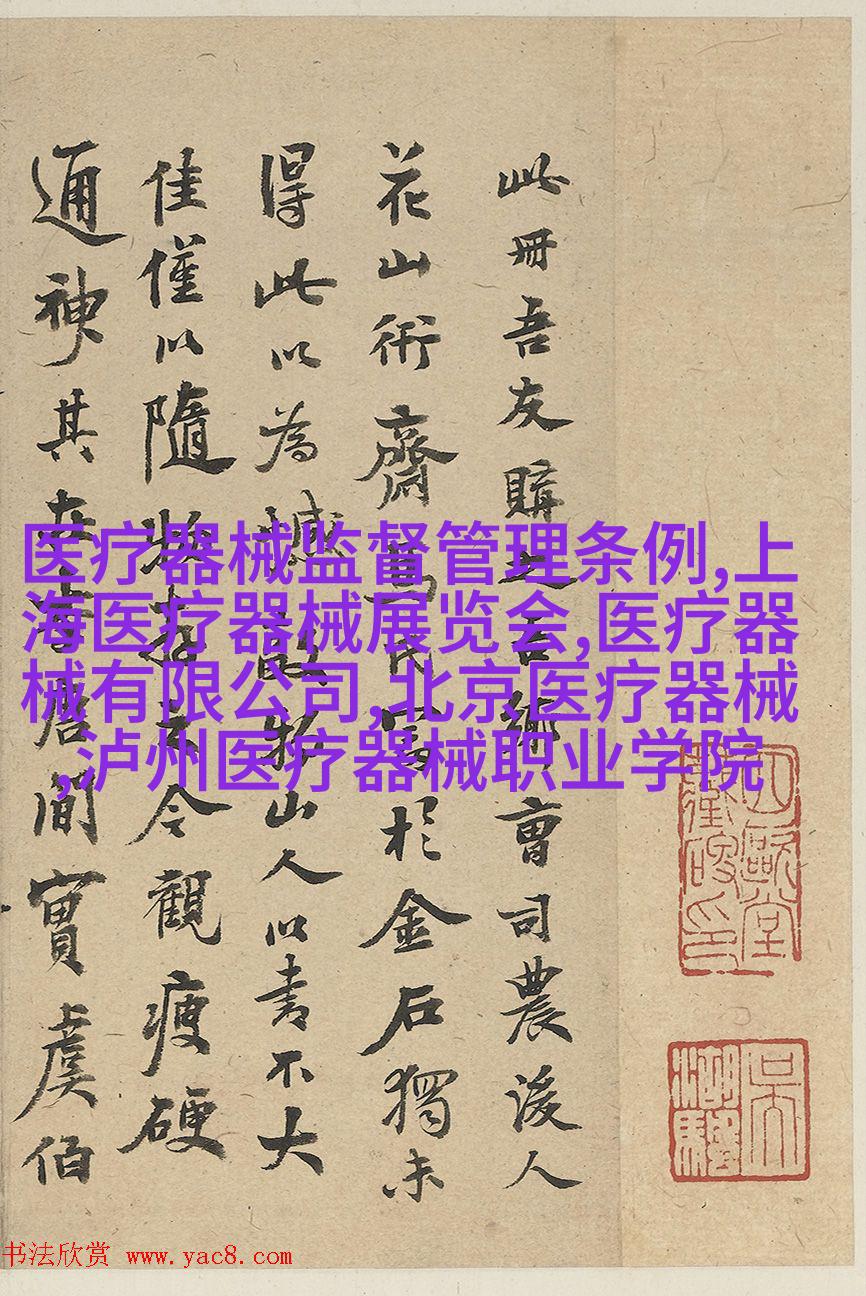 此冊吾友購之吾鄉曹司農後人
花山衖齋為氏富於金石獨未
得此以為憾散牧山人以書不大
佳僅以隨收弆之今觀瘦硬
通神其在晉唐間實虞伯
医疗器械监督管理条例,上
海医疗器械展览会,医疗器
械有限公司,北京医疗器械
,泸州医疗器械职业学院
书法欣赏 www.yac8.com